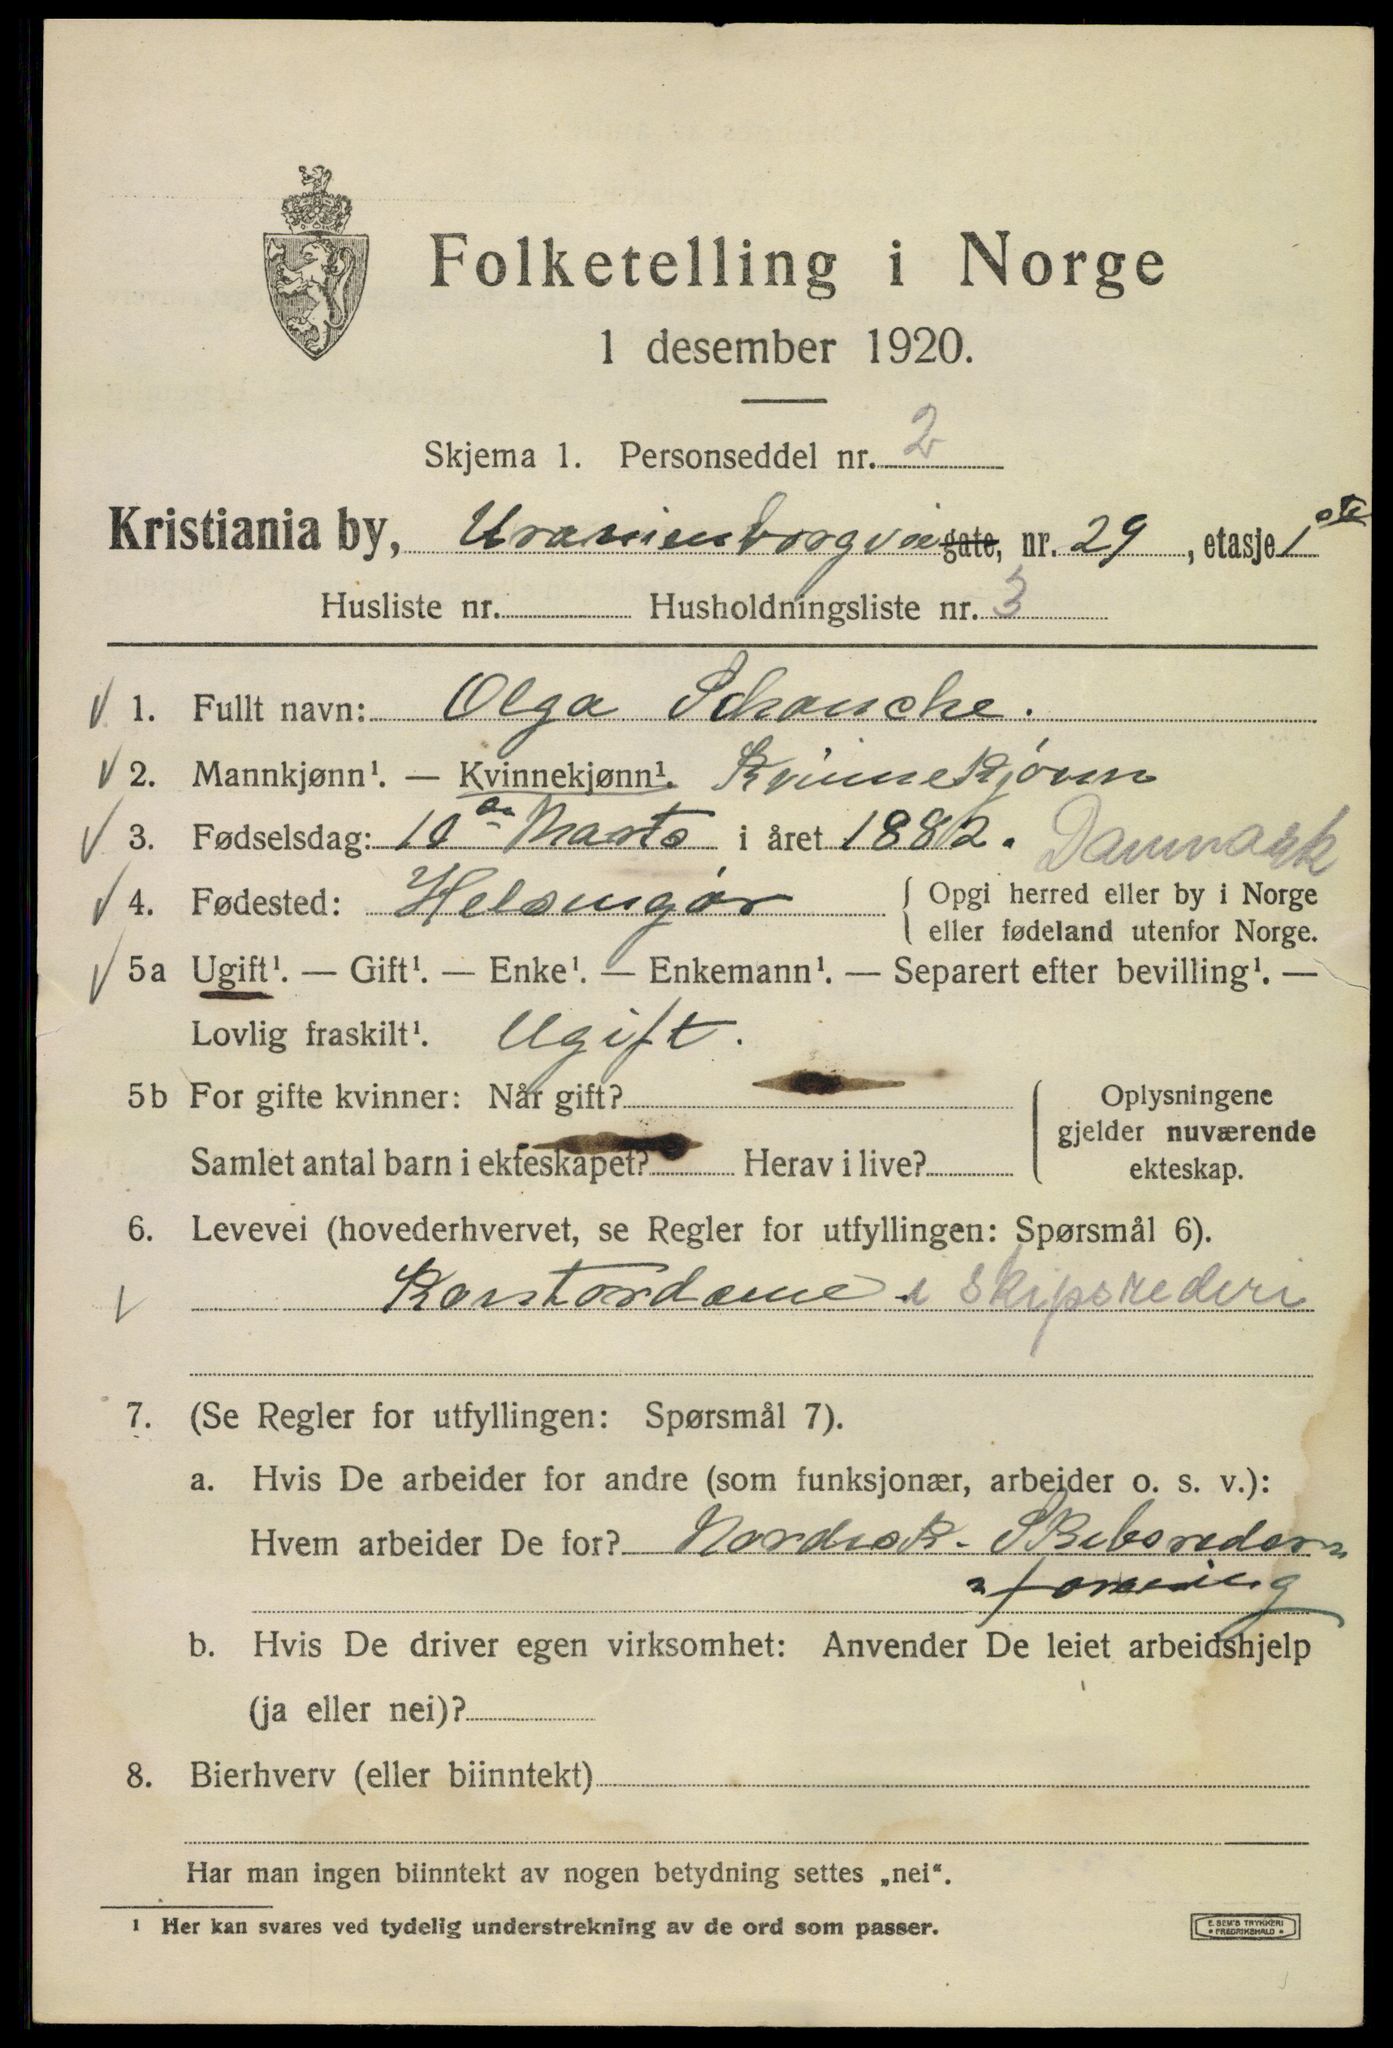 Folketelling i Norge
1 desember 1920.
Skjema 1. Personseddel nr. 2
Kristiania by, Uranienborgvei gate, nr. 29, etasje 1ste
Husliste nr. Husholdningsliste nr. 3
1. Fullt navn: Olga Schanche.
2. Mannkjønn¹. — Kvinnekjønn¹. Kvinnekjønn
3. Fødselsdag: 10de Marts i året 1882. Danmark
4. Fødested: Helsingør { Opgi herred eller by i Norge
eller fødeland utenfor Norge.
5a Ugift¹. — Gift¹. — Enke¹. — Enkemann¹. — Separert efter bevilling¹. —
Lovlig fraskilt¹. Ugift.
5b For gifte kvinner: Når gift? Oplysningene
gjelder nuværende
Samlet antal barn i ekteskapet? Herav i live? ekteskap.
6. Levevei (hovederhvervet, se Regler for utfyllingen: Spørsmål 6).
Kontordame i skipsrederi
7. (Se Regler for utfyllingen: Spørsmål 7).
a. Hvis De arbeider for andre (som funksjonær, arbeider o. s. v.):
Hvem arbeider De for? Nordisk Skibsreder=
=forening
b. Hvis De driver egen virksomhet: Anvender De leiet arbeidshjelp
(ja eller nei)?
8. Bierhverv (eller biinntekt)
Har man ingen biinntekt av nogen betydning settes „nei“.
¹ Her kan svares ved tydelig understrekning av de ord som passer.
E. SEM'S TRYKKERI
* FREDRIKSHALD *